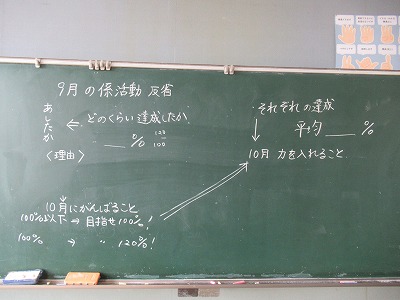 9月の係活動 反省
あしたか
← どのくらい達成したか
___% 100/100
〈理由〉
10月にがんばること
100%以下 → 目指せ100%!
100% → 〃 120%!
それぞれの達成
↓ 平均___%
10月 力を入れること